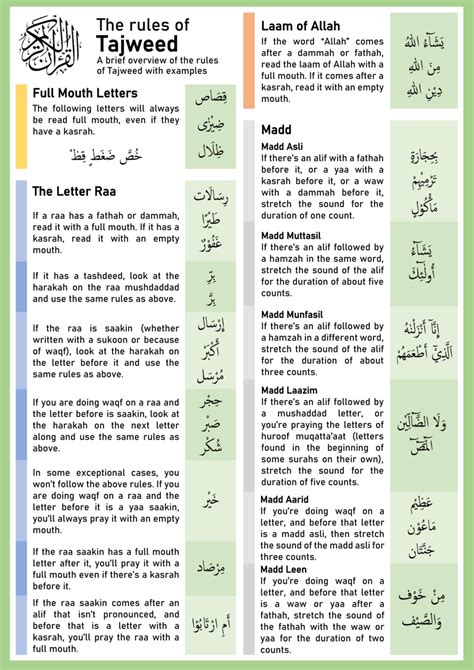 القرآن الكريم
The rules of
Tajweed
A brief overview of the rules
of Tajweed with examples
Full Mouth Letters
The following letters will always
be read full mouth, even if they
have a kasrah.
خُصَّ ضَغْطٍ قِظْ
قِصَاص
ضِيْزٰى
ظِلَال
The Letter Raa
If a raa has a fathah or dammah,
read it with a full mouth. If it has a
kasrah, read it with an empty
mouth.
رِسَالَات
طَيْرًا
غَفُوْرٌ
If it has a tashdeed, look at the
harakah on the raa mushdaddad
and use the same rules as above.
بِرِّ
بِرَّ
If the raa is saakin (whether
written with a sukoon or because
of waqf), look at the harakah on
the letter before it and use the
same rules as above.
إِرْسَال
أَكْبَرْ
مُرْسَل
If you are doing waqf on a raa and
the letter before is saakin, look at
the harakah on the next letter
along and use the same rules as
above.
حِجْر
صَبْر
شُكْر
In some exceptional cases, you
won't follow the above rules. If you
are doing waqf on a raa and the
letter before it is a yaa saakin,
you'll always pray it with an empty
mouth.
خَيْر
If the raa saakin has a full mouth
letter after it, you'll pray it with a
full mouth even if there's a kasrah
before it.
مِرْصَاد
If the raa saakin comes after an
alif that isn't pronounced, and
before that is a letter with a
kasrah, you'll pray the raa with a
full mouth.
أَمِ ارْتَابُوْا
Laam of Allah
If the word "Allah" comes
after a dammah or fathah,
read the laam of Allah with a
full mouth. If it comes after a
kasrah, read it with an empty
mouth.
يَشَآءُ اللهُ
مِنَ اللهِ
دِيْنِ اللهِ
Madd
Madd Asli
If there's an alif with a fathah
before it, or a yaa with a
kasrah before it, or a waw
with a dammah before it,
stretch the sound for the
duration of one count.
بِحِجَارَةٍ
تَرْمِيْهِمْ
مَأْكُوْلٍ
Madd Muttasil
If there's an alif followed by
a hamzah in the same word,
stretch the sound of the alif
for the duration of about five
counts.
يَشَآءُ
أُولٰٓئِكَ
Madd Munfasil
If there's an alif followed by a
hamzah in a different word,
stretch the sound of the alif
for the duration of about
three counts.
إِنَّآ أَنْزَلْنٰهُ
الَّذِيْٓ أَطْعَمَهُمْ
Madd Laazim
If there's an alif followed by
a mushaddad letter, or
you're praying the letters of
huroof muqatta'aat (letters
found in the beginning of
some surahs on their own),
stretch the sound for the
duration of five counts.
وَلَا الضَّآلِّيْنَ
الٓمٓصٓ
Madd Aarid
If you're doing waqf on a
letter, and before that letter
is a madd asli, then stretch
the sound of the madd asli for
three counts.
عَظِيْمٌ
مَاعُوْنَ
جَنَّتَان
Madd Leen
If you're doing waqf on a
letter, and before that letter
is a waw or yaa after a
fathah, stretch the sound of
the fathah with the waw or
yaa for the duration of two
counts.
مِنْ خَوْف
وَالصَّيْف